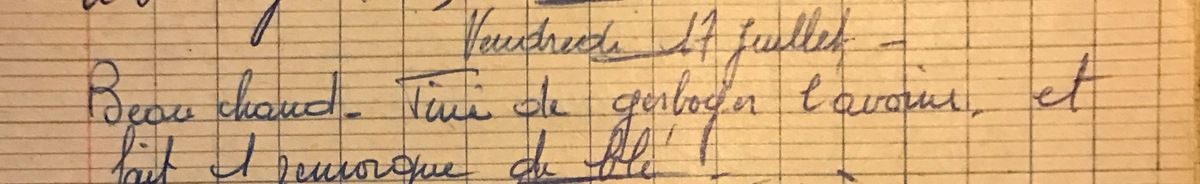 Vendredi 17 juillet -
Beau chaud - Fini de gerboyer l'avoine. et
fait 1 remorque de blé -